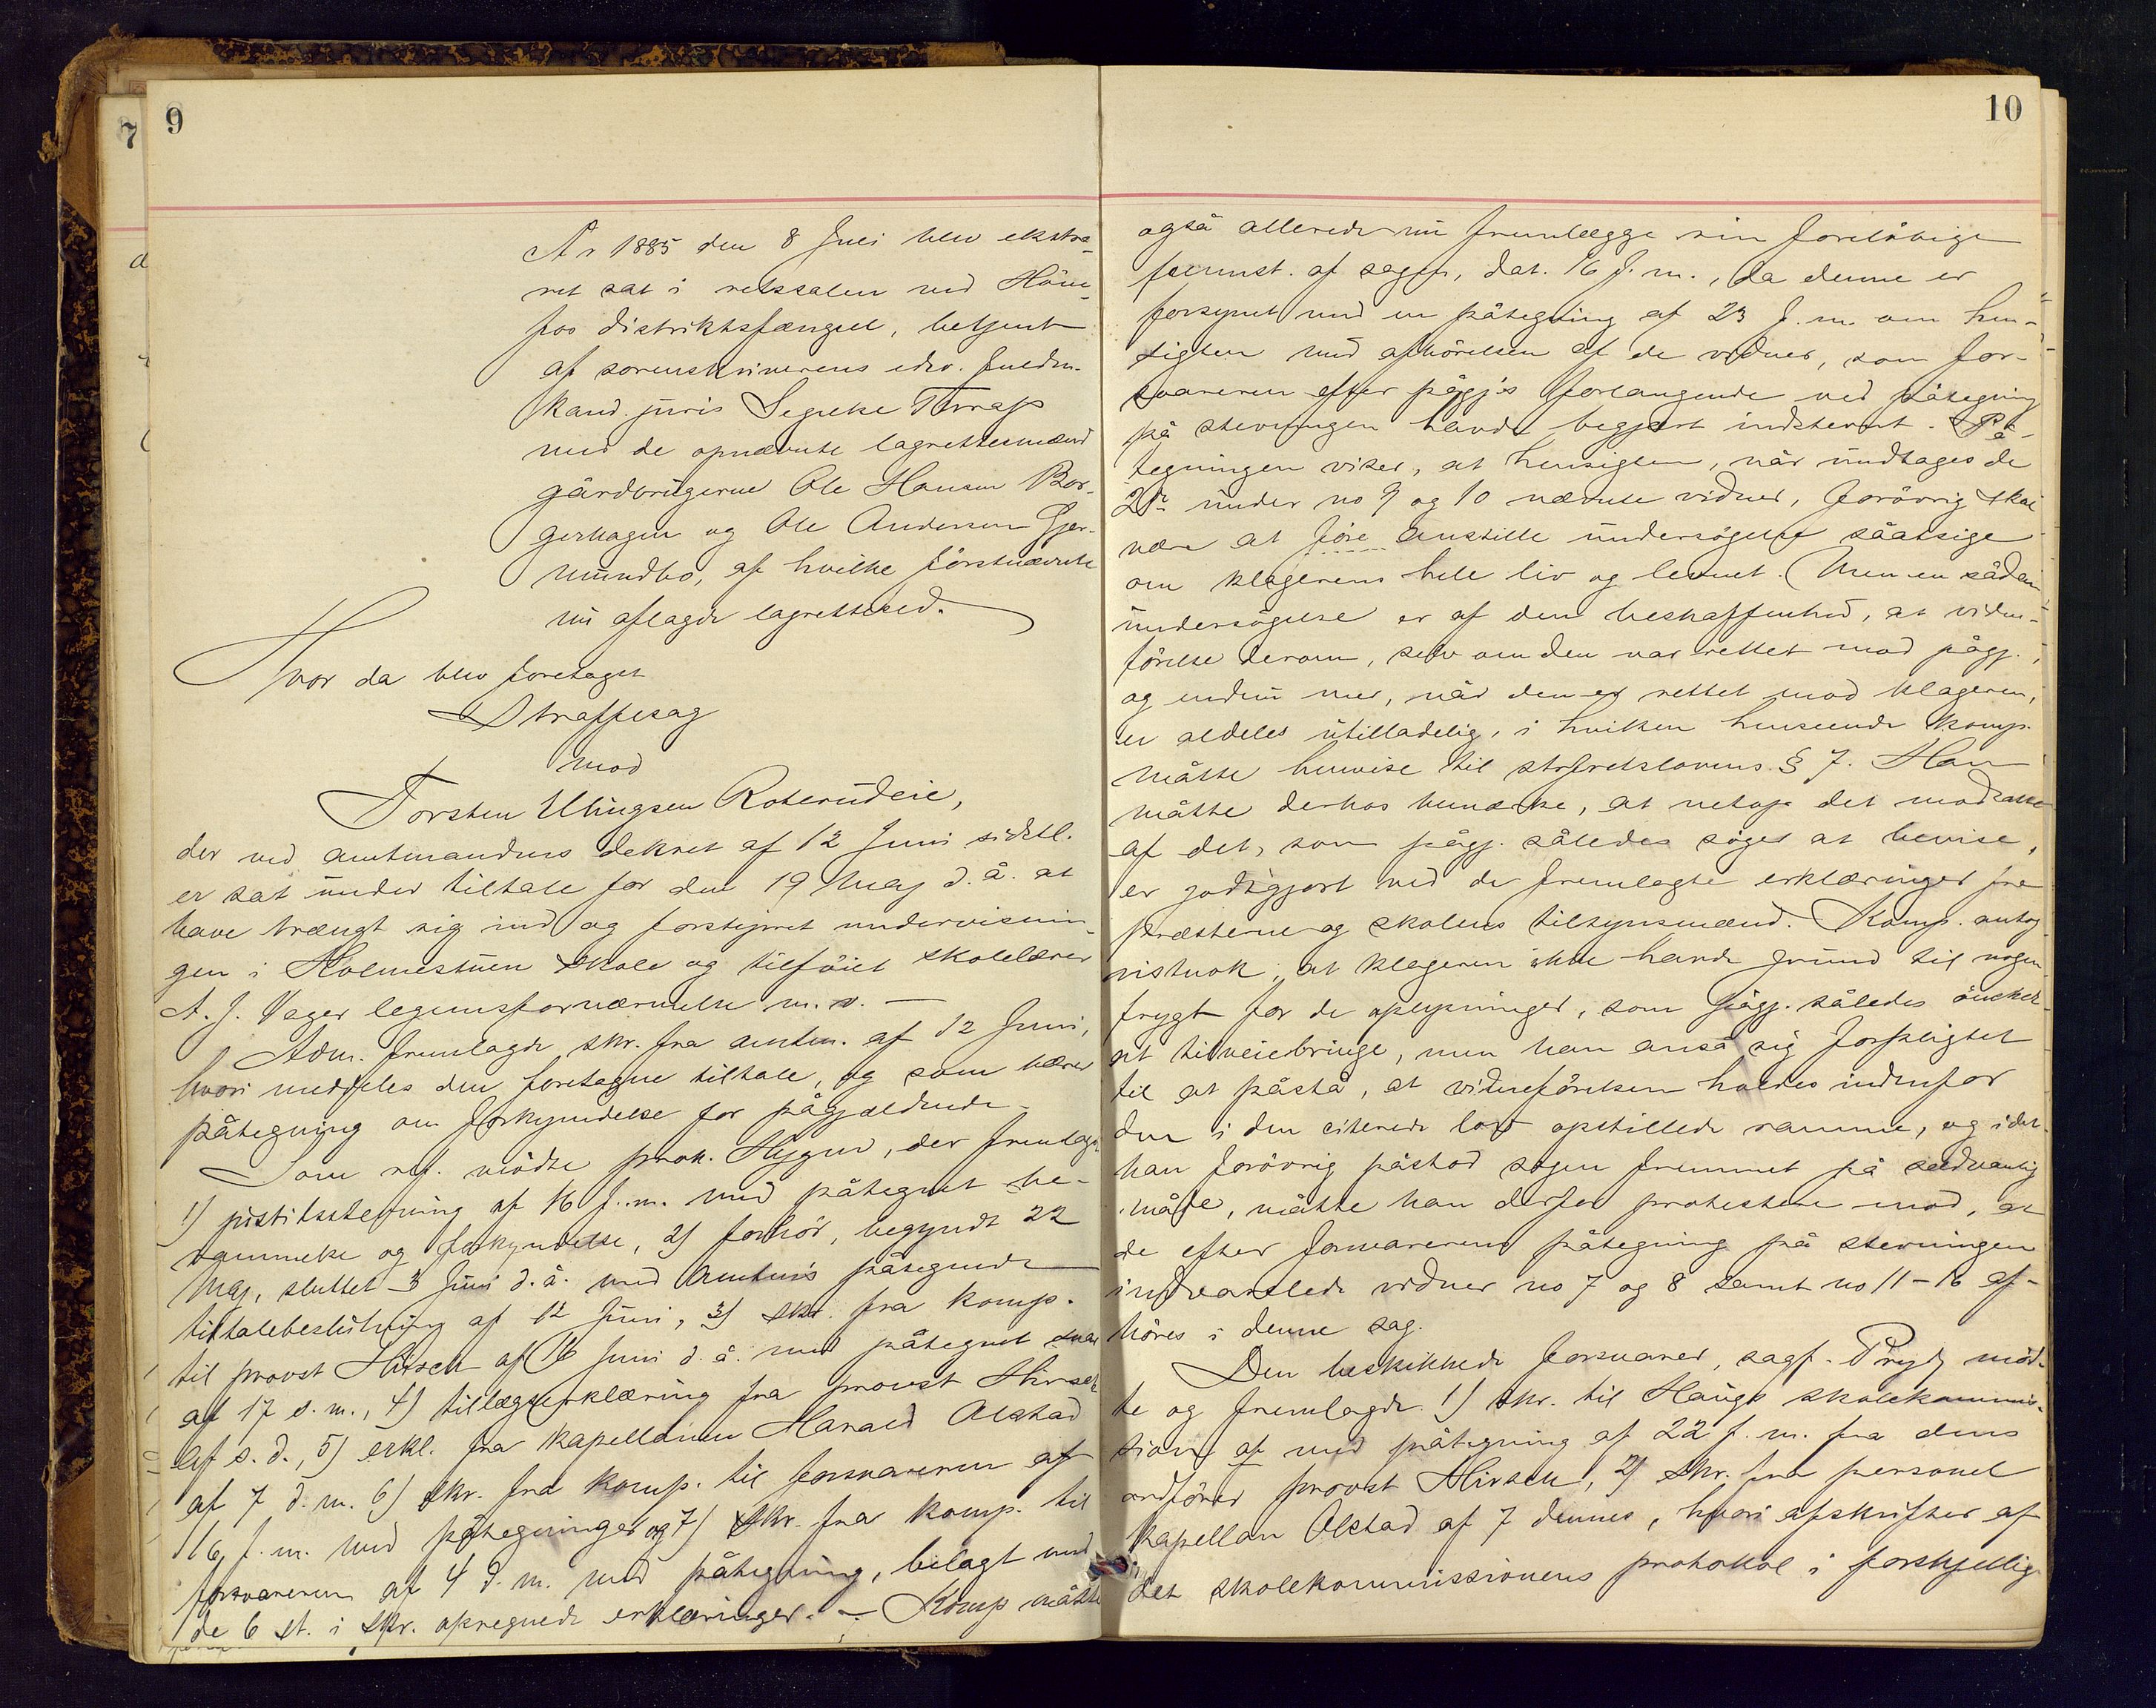 9
År 1885 den 8 Juli blev ekstra-
ret sat i retssalen ved Höne-
fos distriktsfængsel, betjent
af sorenskriverens edsv. fuldm.
kand. juris Segelcke Thrap
med de opnævnte lagrettesmænd
gårdbrugerne Ole Hansen Bor-
gerhagen og Ole Andersen Gjer-
mundbo, af hvilke förstnævnte
nu aflagde lagretteed.
Hvor da blev foretaget
Straffesag
mod
Torsten Ellingsen Roterudeie,
der ved amtmandens dekret af 12 Juni sidstl.
er sat under tiltale for den 19 Maj d. å. at
have trængt sig ind og forstyrret undervisnin-
gen i Holmestuen skole og tilföiet skolelærer
A. J. Vager legemsfornærmelse m. v. —
Adm. fremlagde skr. fra amtm. af 12 Juni,
hvori meddeles den foretagne tiltale, og som bærer
påtegning om forkyndelse for pågjældende.
Som ref. mödte prok. Hygen, der fremlagde
1) justitsstevning af 16 f. m. med påtegnet be-
rammelse og forkyndelse, 2) forhör, begyndt 22
Maj, sluttet 3 Juni d. å. med Amtm's påtegnede
tiltalebeslutning af 12 Juni, 3) skr. fra komp.
til provst Hirsch af 16 Juni d. å. med påtegnet svar
af 17 s. m., 4) tillægserklæring fra provst Hirsch
af s. d., 5) erkl. fra kapellanen Harald Alstad
af 7 d. m. 6) skr. fra komp. til forsvareren af
16 f. m. med påtegninger og 7) skr. fra komp. til
forsvareren af 4 d. m. med påtegning, bilagt med
de 6 st. i skr. opregnede erklæringer. — Komp måtte
10
også allerede nu fremlægge sin foreløbige
fremst. af sagen, dat. 16 f. m., da denne er
forsynet med en påtegning af 23 f. m. om hen-
sigten med afhörelsen af de vidner, som for-
svareren efter pågj's forlangende ved påtegning
på stevningen havde begjært indstevnt. På-
tegningen viser, at hensigten, når undtages de
2de under no 9 og 10 nævnte vidner, forövrig skal
være at före anstille undersögelse såatsige
om klagerens hele liv og levnet. Men en sådan
undersögelse er af den beskaffenhed, at vidne-
förelse derom, selv om den var rettet mod pågj.,
og endnu mer, når den er rettet mod klageren,
er aldeles utilladelig, i hvilken henseende komp.
måtte henvise til strfretslovens § 7. Han
måtte derhos bemærke, at netop det modsatte
af det, som pågj. således söger at bevise,
er godtgjort ved de fremlagte erklæringer fra
præsterne og skolens tilsynsmænd. Komp. antog
vistnok, at klageren ikke havde grund til nogen
frygt for de oplysninger, som pågj. således önsker
at tilveiebringe, men han anså sig forpligtet
til at påstå, at vidneförelsen holdes indenfor
den i den citerede lov opstillede ramme, og idet
han forövrig påstod sagen fremmet på sædvanlig
måde, måtte han derfor protestere mod, at
de efter forsvarerens påtegning på stevningen
indvarslede vidner no 7 og 8 samt no 11–16 af-
höres i denne sag.
Den beskikkede forsvarer, sagf. Prydz möd-
te og fremlagde 1) skr. til Haugs skolekommis-
sion af med påtegning af 22 f. m. fra dens
ordförer provst Hirsch, 2) skr. fra personel
kapellan Alstad af 7 dennes, hvori afskrifter af
det skolekommissionens protokol i forskjellig